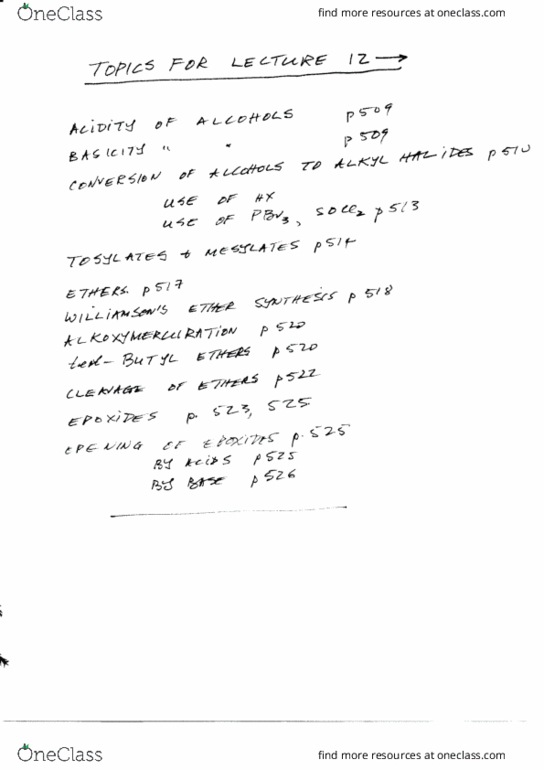 OneClass find more resources at oneclass.com
TOPICS FOR LECTURE 12 →
ACIDITY OF ALCOHOLS p509
BASICITY " " p509
CONVERSION OF ALCOHOLS TO ALKYL HALIDES p510
USE OF HX
USE OF PBr3, SOCl2 p513
TOSYLATES + MESYLATES p514
ETHERS p517
WILLIAMSON'S ETHER SYNTHESIS p518
ALKOXYMERCURATION p520
tert-BUTYL ETHERS p520
CLEAVAGE OF ETHERS p522
EPOXIDES p. 523, 525
OPENING OF EPOXIDES p.525
BY ACIDS p525
BY BASE p526
OneClass find more resources at oneclass.com